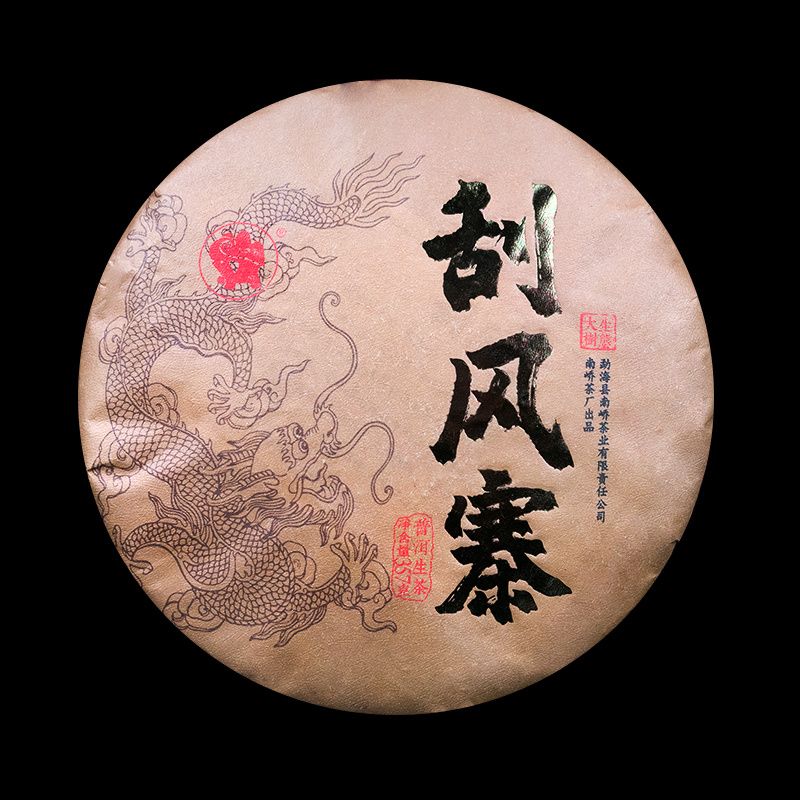 刮风寨
生態
大樹
勐海县南峤茶业有限责任公司
南峤茶厂出品
普洱生茶
净含量357克
®